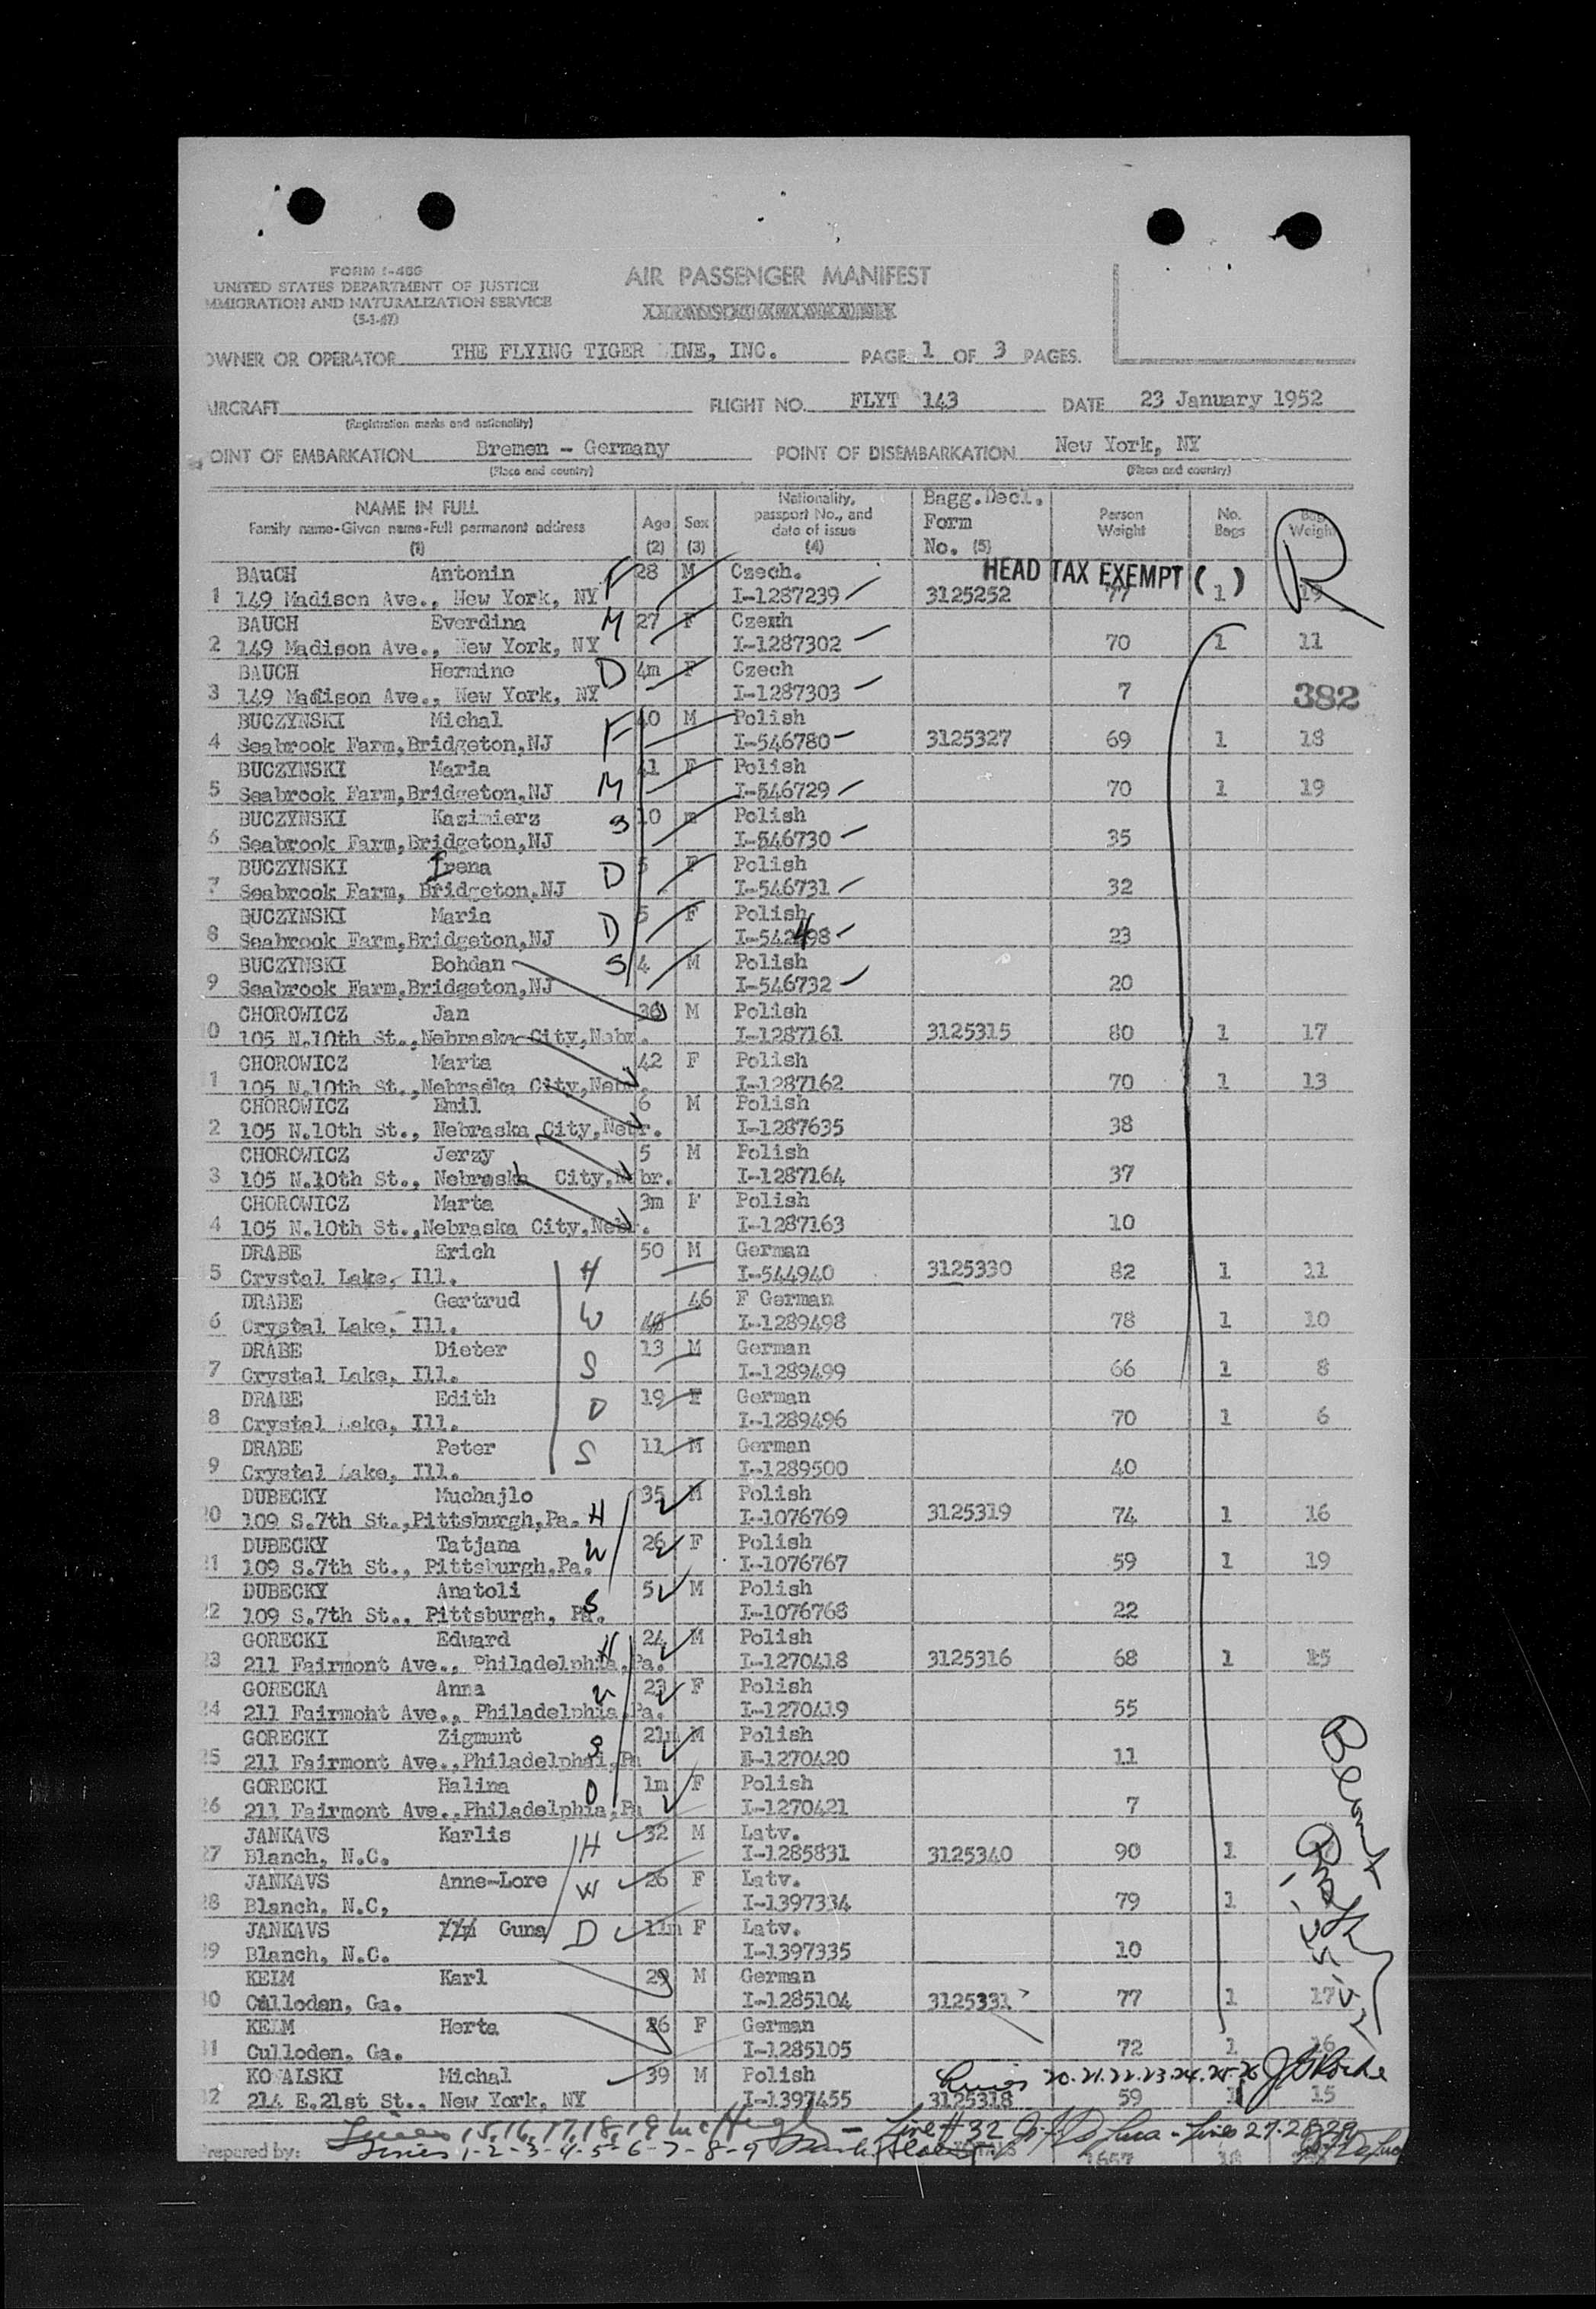 FORM I-466
UNITED STATES DEPARTMENT OF JUSTICE
IMMIGRATION AND NATURALIZATION SERVICE
(5-1-47)
AIR PASSENGER MANIFEST
OWNER OR OPERATOR THE FLYING TIGER INE, INC. PAGE 1 OF 3 PAGES.
AIRCRAFT FLIGHT NO. FLYT 143 DATE 23 January 1952
(Registration marks and nationality)
POINT OF EMBARKATION Bremen - Germany POINT OF DISEMBARKATION New York, NY
(Place and country) (Place and country)
NAME IN FULL
Family name-Given name-Full permanent address
(1)
Age (2) Sex (3) Nationality, passport No., and date of issue (4) Bagg. Decl. Form No. (5) Person Weight No. Bags Bag Weight
R
HEAD TAX EXEMPT ( )
BAuCH Antonin F 28 M Czech.
1 149 Madison Ave., New York, NY I-1287239 3125252 77 1 19
BAUCH Everdina M 27 F Czech
2 149 Madison Ave., New York, NY I-1287302 70 1 11
BAUCH Hermine D 4m F Czech
3 149 Madison Ave., New York, NY I-1287303 7
382
BUCZYNSKI Michal F 40 M Polish
4 Seabrook Farm,Bridgeton,NJ I-546780 3125327 69 1 18
BUCZYNSKI Maria M 41 F Polish
5 Seabrook Farm,Bridgeton,NJ I-546729 70 1 19
BUCZYNSKI Kazimierz S 10 m Polish
6 Seabrook Farm,Bridgeton,NJ I-546730 35
BUCZYNSKI Irena D 5 F Polish
7 Seabrook Farm, Bridgeton,NJ I-546731 32
BUCZYNSKI Maria D 5 F Polish
8 Seabrook Farm,Bridgeton,NJ I-542498 23
BUCZYNSKI Bohdan S 4 M Polish
9 Seabrook Farm,Bridgeton,NJ I-546732 20
CHOROWICZ Jan 36 M Polish
0 105 N.10th St.,Nebraska City,Nebr. I-1287161 3125315 80 1 17
CHOROWICZ Marta 42 F Polish
1 105 N.10th St.,Nebraska City,Nebr. I-1287162 70 1 13
CHOROWICZ Emil 6 M Polish
2 105 N.10th St., Nebraska City,Nebr. I-1287635 38
CHOROWICZ Jerzy 5 M Polish
3 105 N.10th St., Nebraska City,Nebr. I-1287164 37
CHOROWICZ Marta 3m F Polish
4 105 N.10th St.,Nebraska City,Nebr. I-1287163 10
DRABE Erich H 50 M German
5 Crystal Lake, Ill. I-544940 3125330 82 1 11
DRABE Gertrud W 46 F German
6 Crystal Lake, Ill. I-1289498 78 1 10
DRABE Dieter S 13 M German
7 Crystal Lake, Ill. I-1289499 66 1 8
DRABE Edith D 19 F German
8 Crystal Lake, Ill. I-1289496 70 1 6
DRABE Peter S 11 M German
9 Crystal Lake, Ill. I-1289500 40
DUBECKY Muchajlo H 35 M Polish
20 109 S.7th St.,Pittsburgh,Pa. I-1076769 3125319 74 1 16
DUBECKY Tatjana W 26 F Polish
21 109 S.7th St., Pittsburgh,Pa. I-1076767 59 1 19
DUBECKY Anatoli S 5 M Polish
22 109 S.7th St., Pittsburgh, Pa. I-1076768 22
GORECKI Eduard H 24 M Polish
23 211 Fairmont Ave., Philadelphia,Pa. I-1270418 3125316 68 1 15
GORECKA Anna W 23 F Polish
24 211 Fairmont Ave., Philadelphia,Pa. I-1270419 55
GORECKI Zigmunt S 21m M Polish
25 211 Fairmont Ave.,Philadelphai,Pa I-1270420 11
GORECKI Halina D 1m F Polish
26 211 Fairmont Ave.,Philadelphia,Pa I-1270421 7
JANKAVS Karlis H 32 M Latv.
27 Blanch, N.C. I-1285831 3125340 90 1
JANKAVS Anne-Lore W 26 F Latv.
28 Blanch, N.C, I-1397334 79 1
JANKAVS Guna D 11m F Latv.
29 Blanch, N.C. I-1397335 10
KEIM Karl 29 M German
30 Culloden, Ga. I-1285104 3125331 77 1 17
KEIM Herta 26 F German
31 Culloden, Ga. I-1285105 72 1 16
KOWALSKI Michal 39 M Polish
32 214 E.21st St., New York, NY I-1397455 3125318 59 1 15
Lines 20.21.22.23.24.25.26
Lines 15.16.17.18.19 - Line # 32 - Lines 27.28.29
Prepared by: Lines 1-2-3-4-5-6-7-8-9 1657 18